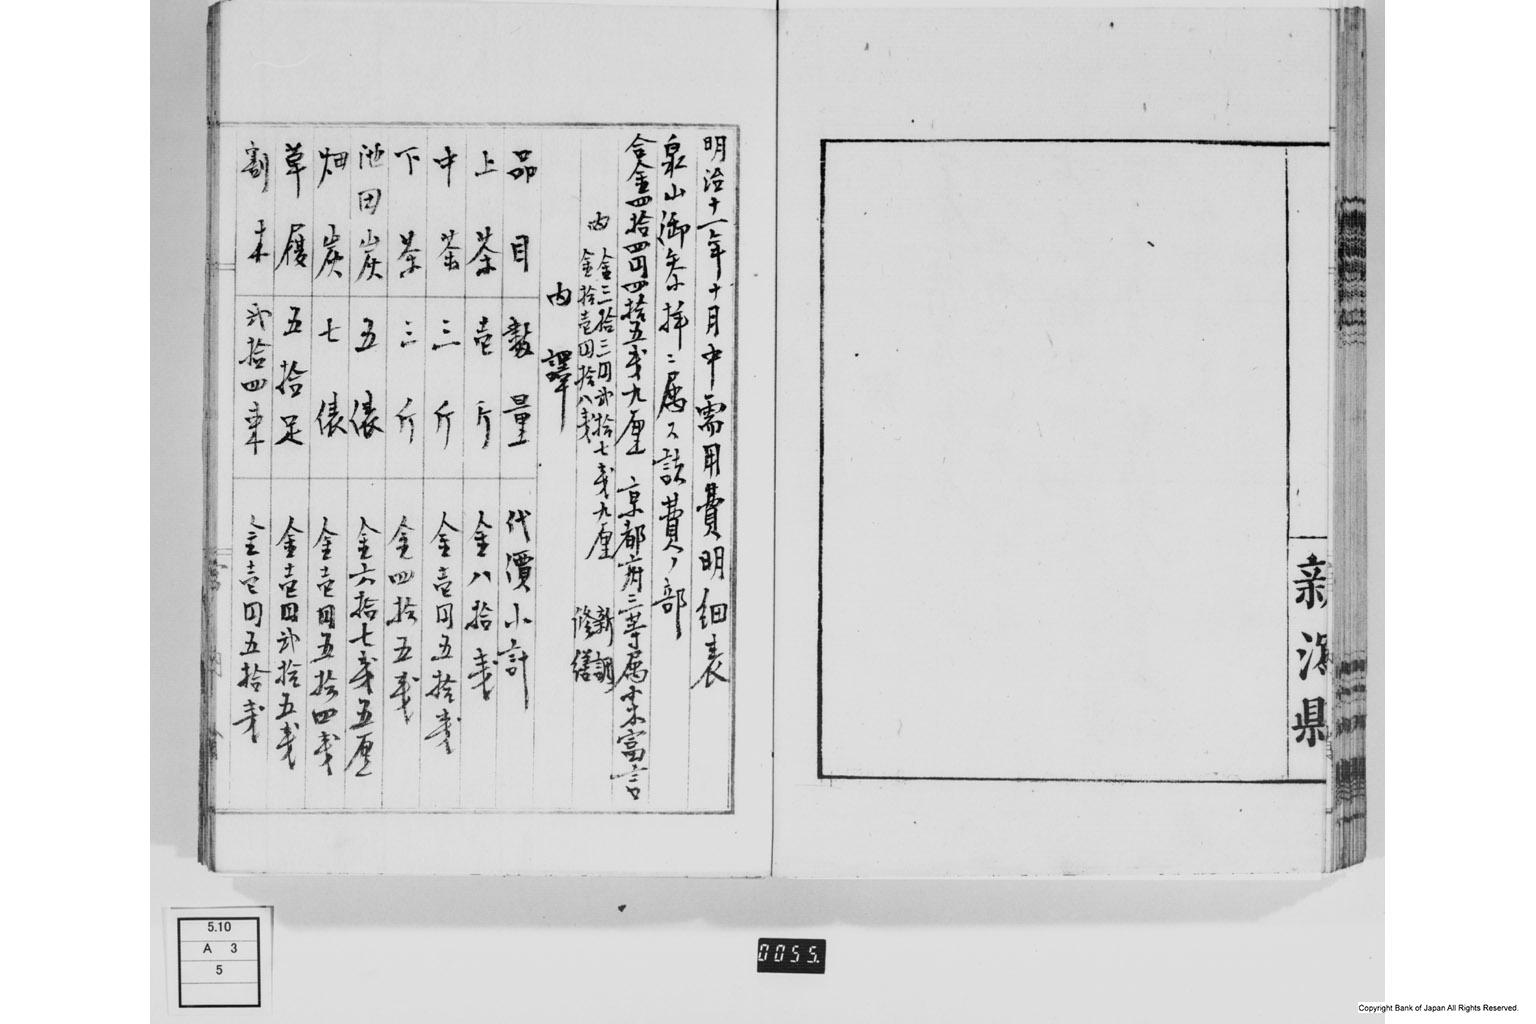 新潟県
明治十一年十月中需用費明細表
泉山御参拝ニ属スル諸費ノ部
合金四拾四円四拾五銭九厘 京都府三等属 富言
内 金三拾三円弐拾七銭九厘 新調
金拾壱円拾八銭 修繕
内譯
品目 數量 代價小計
上茶 壱斤 金八拾銭
中茶 三斤 金壱円五拾銭
下茶 三斤 金四拾五銭
池田炭 五俵 金六拾七銭五厘
畑炭 七俵 金壱円五拾四銭
草履 五拾足 金壱円弐拾五銭
割木 弐拾四束 金壱円五拾銭
5.10
A 3
5
0055.
Copyright Bank of Japan All Rights Reserved.